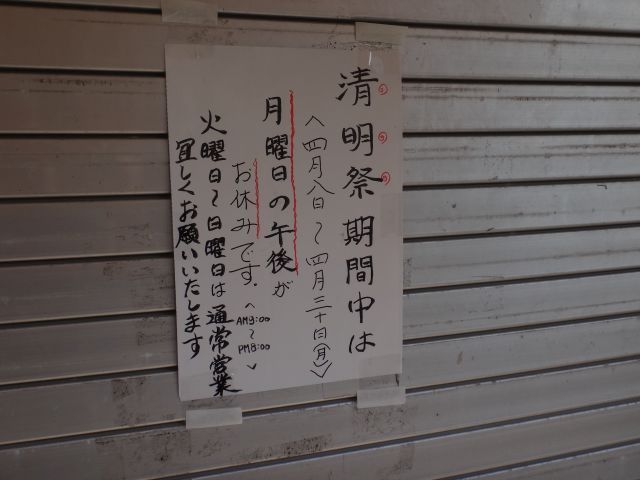 清明祭期間中は
〈四月八日〜四月三十日(月)〉
月曜日の午後が
お休みです。
〈AM9:00〜PM8:00〉
火曜日〜日曜日は通常営業
宜しくお願いいたします